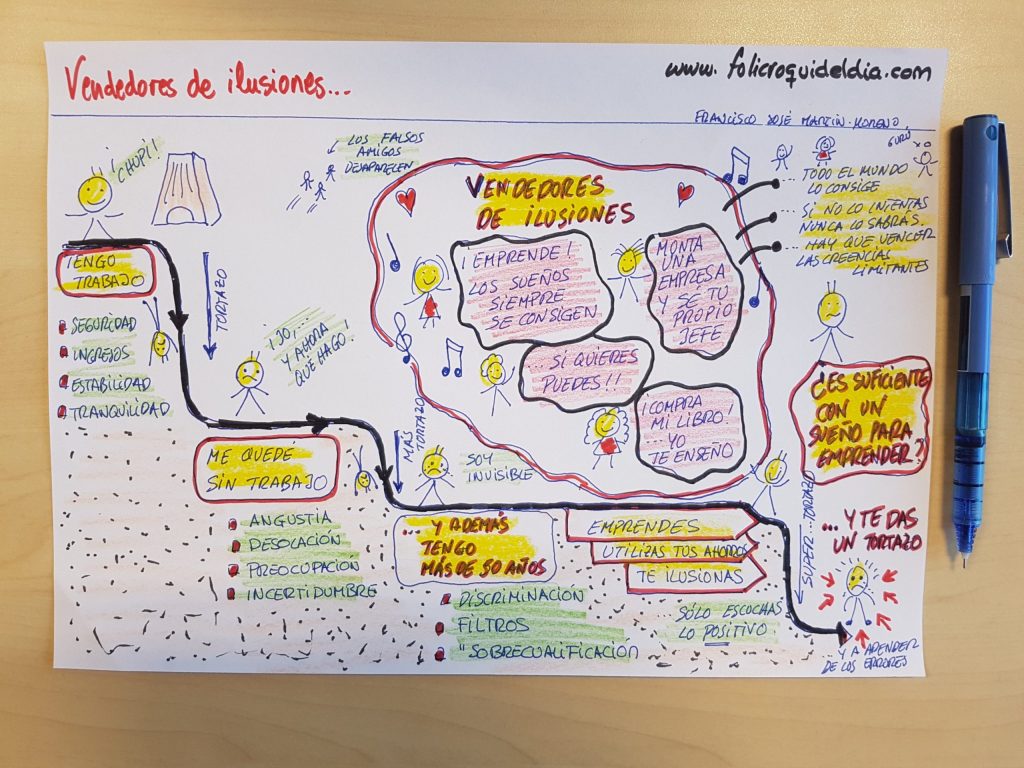 Vendedores de ilusiones...
www.folicroquideldia.com
FRANCISCO JOSÉ MARTÍN-MORENO
¡CHUPI!
LOS FALSOS
AMIGOS
DESAPARECEN
GURÚ
... TODO EL MUNDO
LO CONSIGE
... SI NO LO INTENTAS
NUNCA LO SABRÁS
... HAY QUE VENCER
LAS CREENCIAS
LIMITANTES
VENDEDORES
DE ILUSIONES
¡EMPRENDE!
LOS SUEÑOS
SIEMPRE
SE CONSIGEN
MONTA
UNA
EMPRESA
Y SE TU
PROPIO
JEFE
... SI QUIERES
PUEDES!!
¡COMPRA
MI LIBRO!
... YO
TE ENSEÑO
TENGO
TRABAJO
SEGURIDAD
INGRESOS
ESTABILIDAD
TRANQUILIDAD
TORTAZO
¡JO...
Y AHORA
QUÉ HAGO!
ME QUEDÉ
SIN TRABAJO
ANGUSTIA
DESOLACIÓN
PREOCUPACIÓN
INCERTIDUMBRE
MÁS
TORTAZO
SOY
INVISIBLE
... Y ADEMÁS
TENGO
MÁS DE 50 AÑOS
DISCRIMINACIÓN
FILTROS
"SOBRECUALIFICACIÓN
EMPRENDES
UTILIZAS TUS AHORROS
TE ILUSIONAS
... SÓLO ESCUCHAS
LO POSITIVO
SUPER...TORTAZO
¿ES SUFICIENTE
CON UN
SUEÑO PARA
EMPRENDER?
... Y TE DAS
UN TORTAZO
... Y A APENDER
DE LOS ERRORES